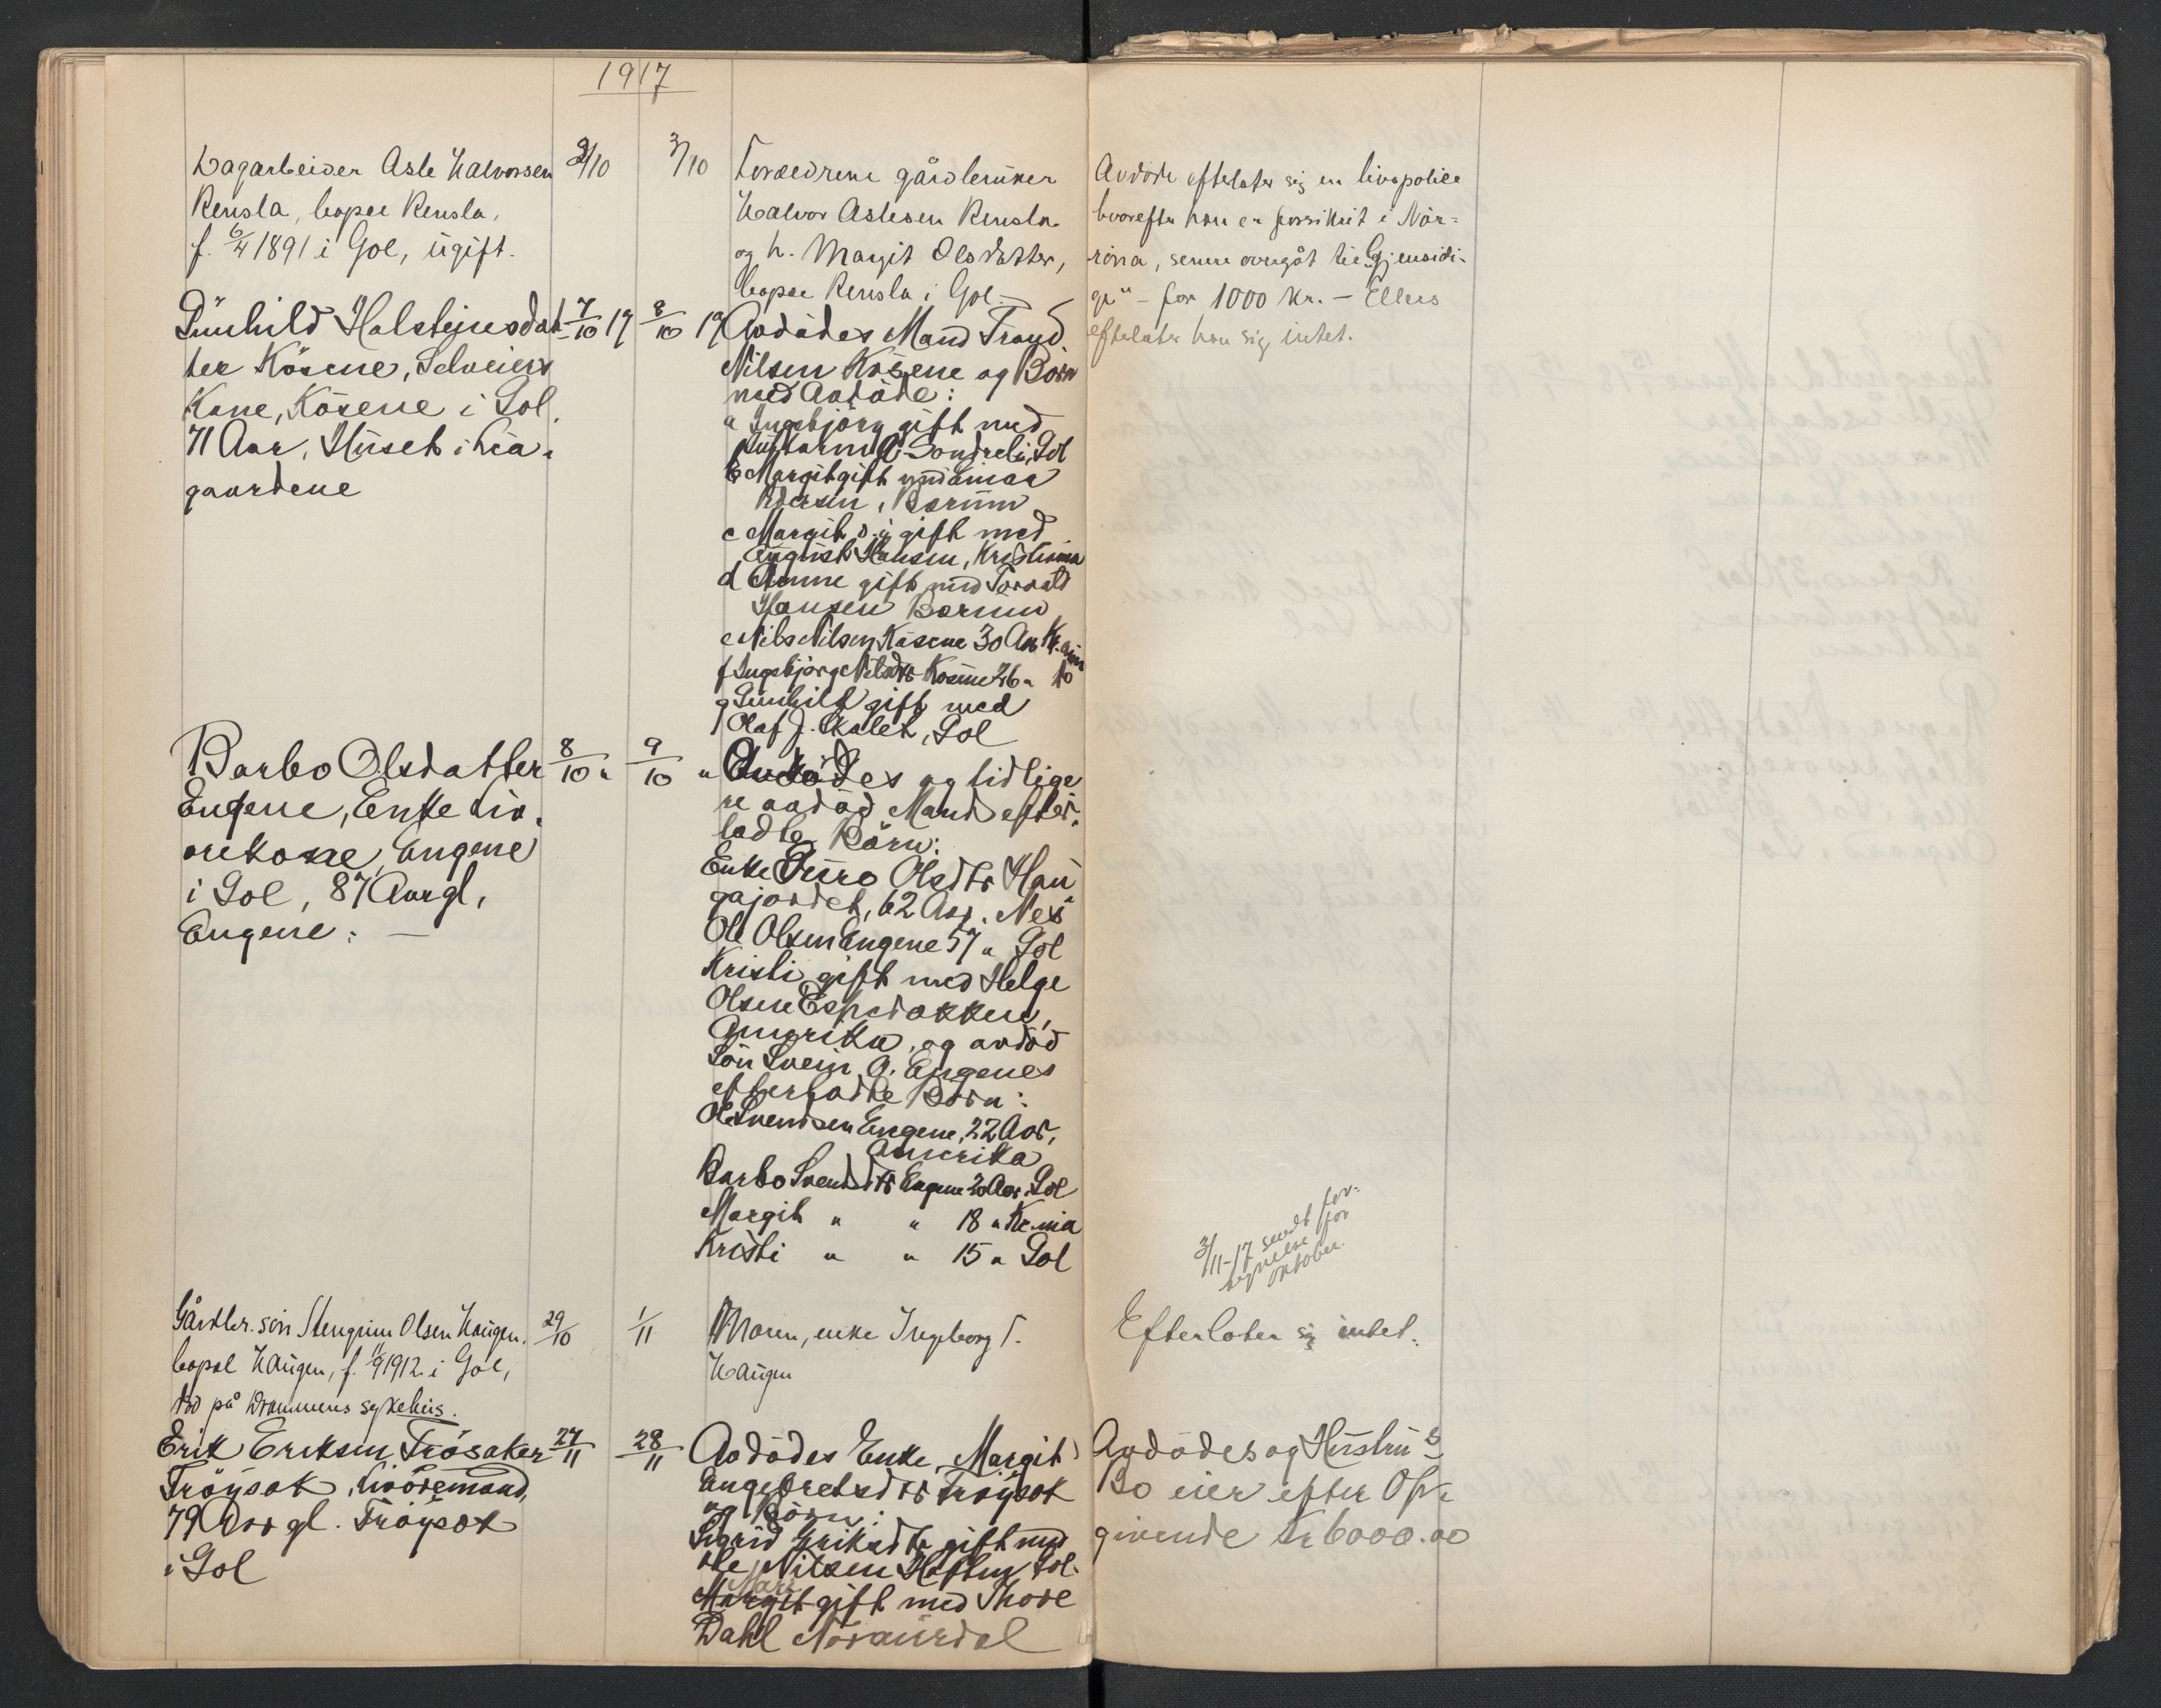 1917
Dagarbeider Asle Halvorsen 3/10 3/10
Rensla, bopæl Rensla,
f. 6/4 1891 i Gol, ugift.
Forældrene gårdbruker
Halvor Aslesen Rensla
og h. Margit Olsdatter,
bopæl Rensla i Gol. —
Avdøde efterlater sig en livspolice
hvorefter han er forsikret i Nor=
røna, senere overgåt til "Gjensidi-
ge" – for 1000 kr. – Ellers
efterlater han sig intet.
Gunhild Holsteinsdat- 7/10 19 8/10 19
ter Kösene, Selveiers
Kone, Kösene i Gol.
71 Aar, Huset i Lia-
gaardene
Avdödes Mand Trond
Nilsen Kösene og Börn
med Avdöde:
a Ingebjörg gift med
Sondreli, Gol
b Margit gift med
Pedersen, Bærum
c Margit d.y. gift med
August Hansen, Kristiania
d Anne gift med Torvald
Hansen Bærum
e Nils Nilsen Kösene 30 Aar Kr.ania
f Ingebjørg Nilsdtr Kösene 26 " to
g Gunhild gift med
Olaf J. Skalet, Gol
Barbo Olsdatter 8/10 " 9/10 "
Engene, Enke Liv-
örekone, Engene
i Gol, 87 Aar gl,
Engene: —
Avdödes og tidlige
re avdöd Mands efter-
ladte Börn:
Enke Guro Olsdtr Hau
gajordet, 62 Aar. Nes
Ole Olsen Engene 57 " Gol
Kristi gift med Helge
Olsen Espedokken,
Amerika, og avdöd
Sön Svein O. Engenes
efterladte Börn:
Ole Svendsen Engene, 22 Aar,
Amerika
Barbo Svendsdtr Engene 20 Aar. Gol
Margit " " 18 " Kr.nia
Kristi " " 15 " Gol
3/11-17 sendt for-
tegnelse for
oktober.
Gårdbr. søn Stengrim Olsen Haugen, 29/10 1/11
bopæl Haugen, f. 11/9 1912 i Gol,
død på Drammens sykehus.
Moren, enke Ingeborg T.
Haugen
Efterlater sig intet.
Erik Eriksen Trösaker 27/11 28/11
Tröysok, Livöremand,
79 Aar gl. Tröysok
i Gol
Avdödes Enke, Margit
Engebretsdtr Tröysok
og Börn:
Sigrid Eriksdtr gift med
Ole Nilsen Gol.
Mari
Margit gift med Thore
Dahl Noraurdal
Avdödes og Hustru's
Bo eier efter Op-
givende Kr 6000.00